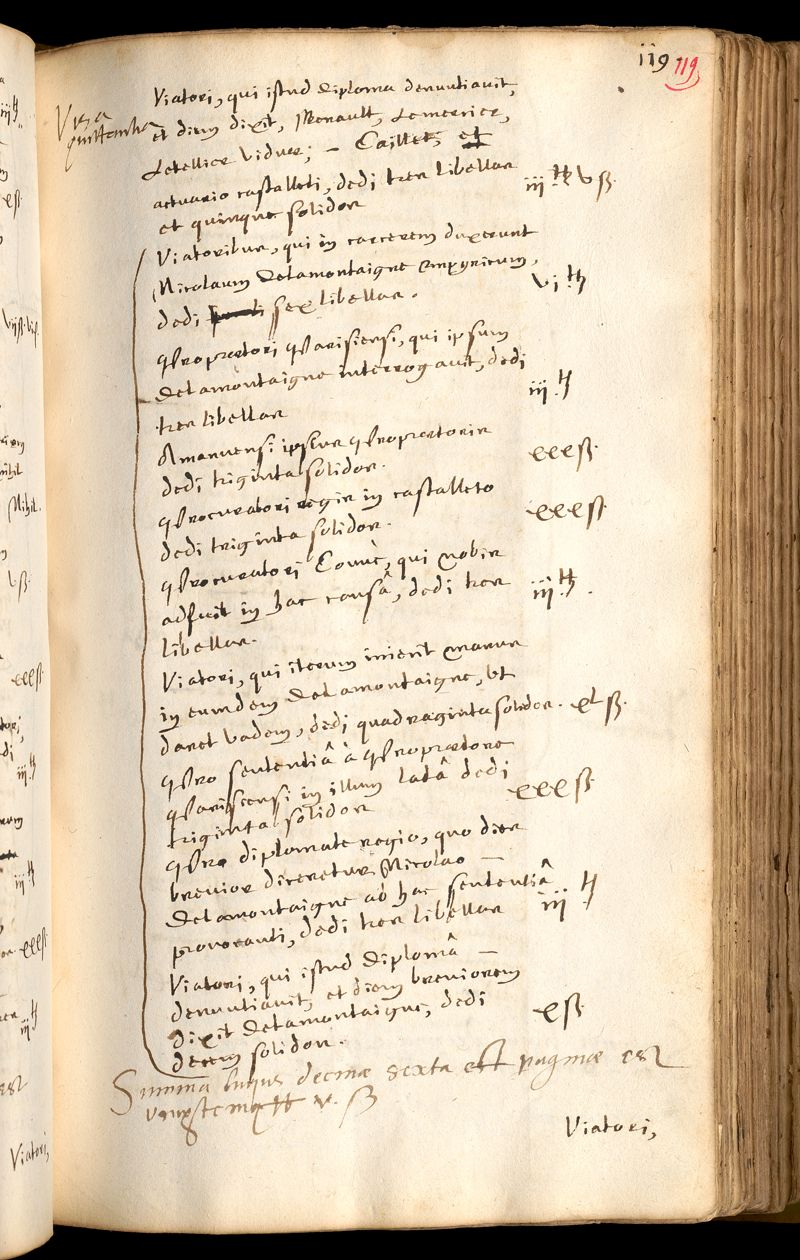 119 119
Viatori, qui istud diploma denuntiauit,
Visa
quittantia
et diem dixit, Renault, Lemercier,
Letellier viduæ; – Caillet, et
actuario castalleti, dedi tres libellas
et quinque solidos
iij ₶ v ß.
Viatoribus, qui in carcerem duxerunt
Nicolaum Delamontaigne empyricum,
dedi sex libellas.
vj ₶
Proprætori Parisiensi, qui ipsum
Delamontaigne interrogauit, dedi
tres libellas
iij ₶
Amanuensi ipsius Proprætoris
dedi triginta solidos.
xxx ß.
Procuratori regis in castalleto
dedi triginta solidos.
xxx ß
Procuratori Conuè, qui nobis
adfuit in hac causâ, dedi tres
libellas.
iij ₶.
Viatori, qui iterum iniecit manus
in eumdem Delamontaigne, vt
daret vadem, dedi quadraginta solidos. xl ß.
Pro sententiâ à Proprætore
Parisiensi in illum latâ dedi
triginta solidos
xxx ß.
Pro diplomate regio, quo dies
breuior diceretur Nicolao —
Delamontaigne ab hac sententiâ
prouocanti, dedi tres libellas
iij ₶
Viatori, qui istud diplomâ —
denuntiauit, et diem breuiorem
dixit Delamontaigne, dedi
decem solidos.
x ß.
Summa huius decimæ sexta est paginæ
₶ v. ß
Viatori,